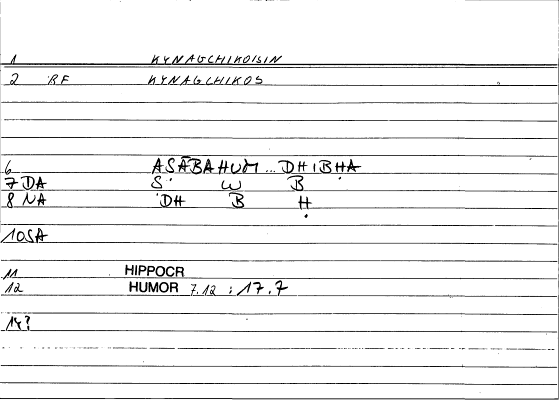 1 KYNAGCHIKOISIN
2 RF KYNAGCHIKOS
6 ASĀBAHUM ... DHIBḤA
7 DA S. W B
8 NA DH B Ḥ
10 SA
11 HIPPOCR
12 HUMOR 7.12 : 17.7
14?